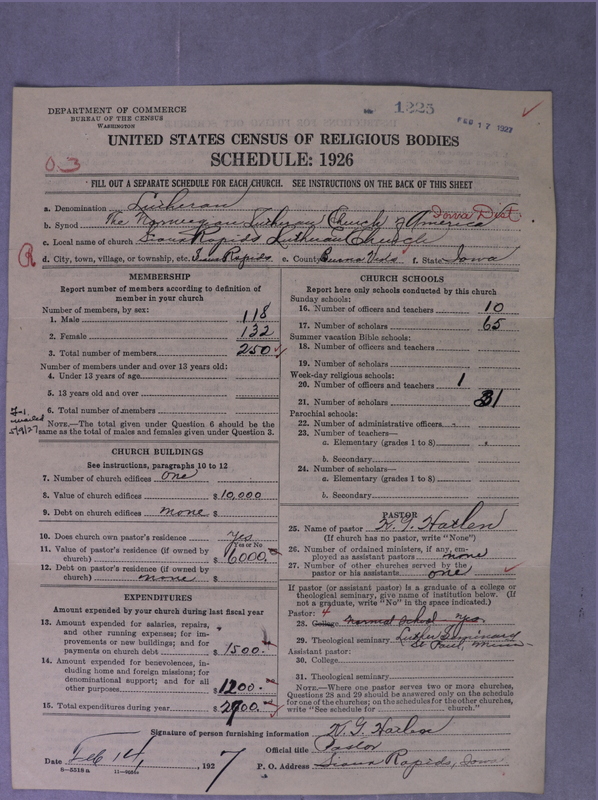 DEPARTMENT OF COMMERCE
BUREAU OF THE CENSUS
WASHINGTON
1225
FEB 17 1927
UNITED STATES CENSUS OF RELIGIOUS BODIES
SCHEDULE: 1926
FILL OUT A SEPARATE SCHEDULE FOR EACH CHURCH. SEE INSTRUCTIONS ON THE BACK OF THIS SHEET
a. Denomination Lutheran
b. Synod The Norwegian Lutheran Church of America Iowa Dist.
c. Local name of church Sioux Rapids Lutheran Church
d. City, town, village, or township, etc. Sioux Rapids e. County Buena Vista f. State Iowa
MEMBERSHIP
Report number of members according to definition of
member in your church
Number of members, by sex:
1. Male 118
2. Female 132
3. Total number of members 250
Number of members under and over 13 years old:
4. Under 13 years of age
5. 13 years old and over
6. Total number of members
NOTE.—The total given under Question 6 should be the
same as the total of males and females given under Question 3.
CHURCH BUILDINGS
See instructions, paragraphs 10 to 12
7. Number of church edifices One
8. Value of church edifices $ 10,000
9. Debt on church edifices none $
10. Does church own pastor's residence Yes
Yes or No
11. Value of pastor's residence (if owned by
church) $ 6000.
12. Debt on pastor's residence (if owned by
church) none $
EXPENDITURES
Amount expended by your church during last fiscal year
13. Amount expended for salaries, repairs,
and other running expenses; for im-
provements or new buildings; and for
payments on church debt $ 1500.
14. Amount expended for benevolences, in-
cluding home and foreign missions; for
denominational support; and for all
other purposes $ 1200.
15. Total expenditures during year $ 2700.
CHURCH SCHOOLS
Report here only schools conducted by this church
Sunday schools:
16. Number of officers and teachers 10
17. Number of scholars 65
Summer vacation Bible schools:
18. Number of officers and teachers
19. Number of scholars
Week-day religious schools:
20. Number of officers and teachers 1
21. Number of scholars 31
Parochial schools:
22. Number of administrative officers
23. Number of teachers—
a. Elementary (grades 1 to 8)
b. Secondary
24. Number of scholars—
a. Elementary (grades 1 to 8)
b. Secondary
PASTOR
25. Name of pastor
(If church has no pastor, write "None")
26. Number of ordained ministers, if any, em-
ployed as assistant pastors none
27. Number of other churches served by the
pastor or his assistants one
If pastor (or assistant pastor) is a graduate of a college or
theological seminary, give name of institution below. (If
not a graduate, write "No" in the space indicated.)
Pastor: 4
28. College Normal School yes
29. Theological seminary Luther Seminary
St Paul, Minn
Assistant pastor:
30. College
31. Theological seminary
NOTE.—Where one pastor serves two or more churches,
Questions 28 and 29 should be answered only on the schedule
for one of the churches; on the schedules for the other churches,
write "See schedule for church."
Signature of person furnishing information
Official title Pastor
Date Feb 14, 1927 P. O. Address Sioux Rapids, Iowa